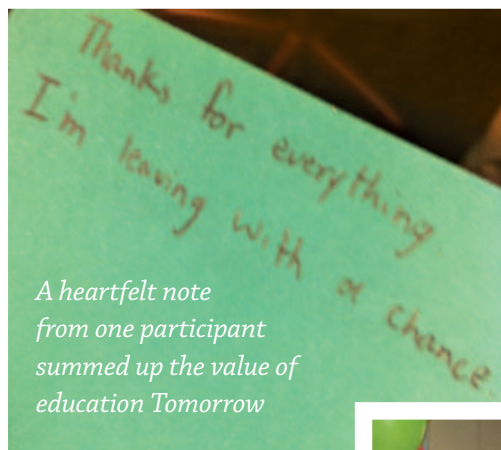 Thanks for everything
I'm leaving with a chance
A heartfelt note
from one participant
summed up the value of
education Tomorrow